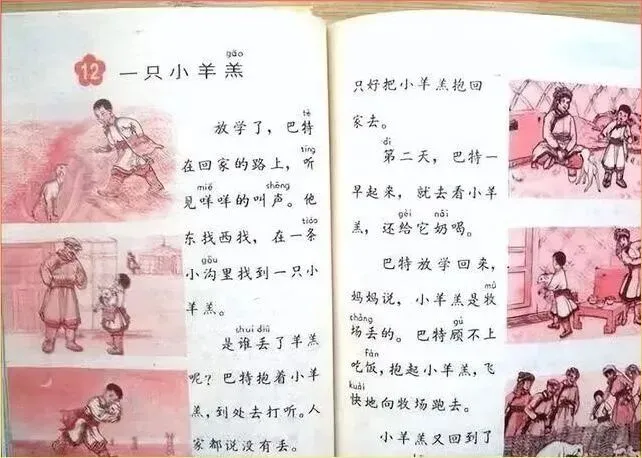 12 一只小羊羔
gāo
放学了，巴特
tè
在回家的路上，听
tīng
见咩咩的叫声。他
miē shēng
东找西找，在一条
tiáo
小沟里找到一只小
gōu
羊羔。
是谁丢了羊羔
shuí diū
呢？巴特抱着小羊
羔，到处去打听。人
家都说没有丢。
只好把小羊羔抱回
家去。
第二天，巴特一
dì
早起来，就去看小羊
羔，还给它奶喝。
gěi nǎi
巴特放学回来，
妈妈说，小羊羔是牧
mù
场丢的。巴特顾不上
chǎng gù
吃饭，抱起小羊羔，飞
fàn
快地向牧场跑去。
kuài
小羊羔又回到了